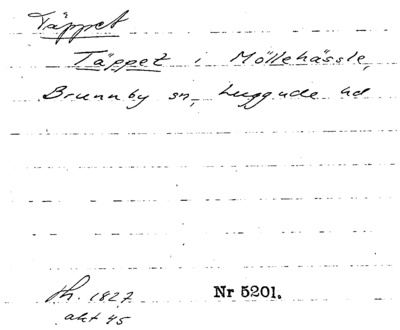 Täppet
Täppet i Möllehässle,
Brunnby sn, Luggude hd
th. 1827 Nr 5201.
akt 45